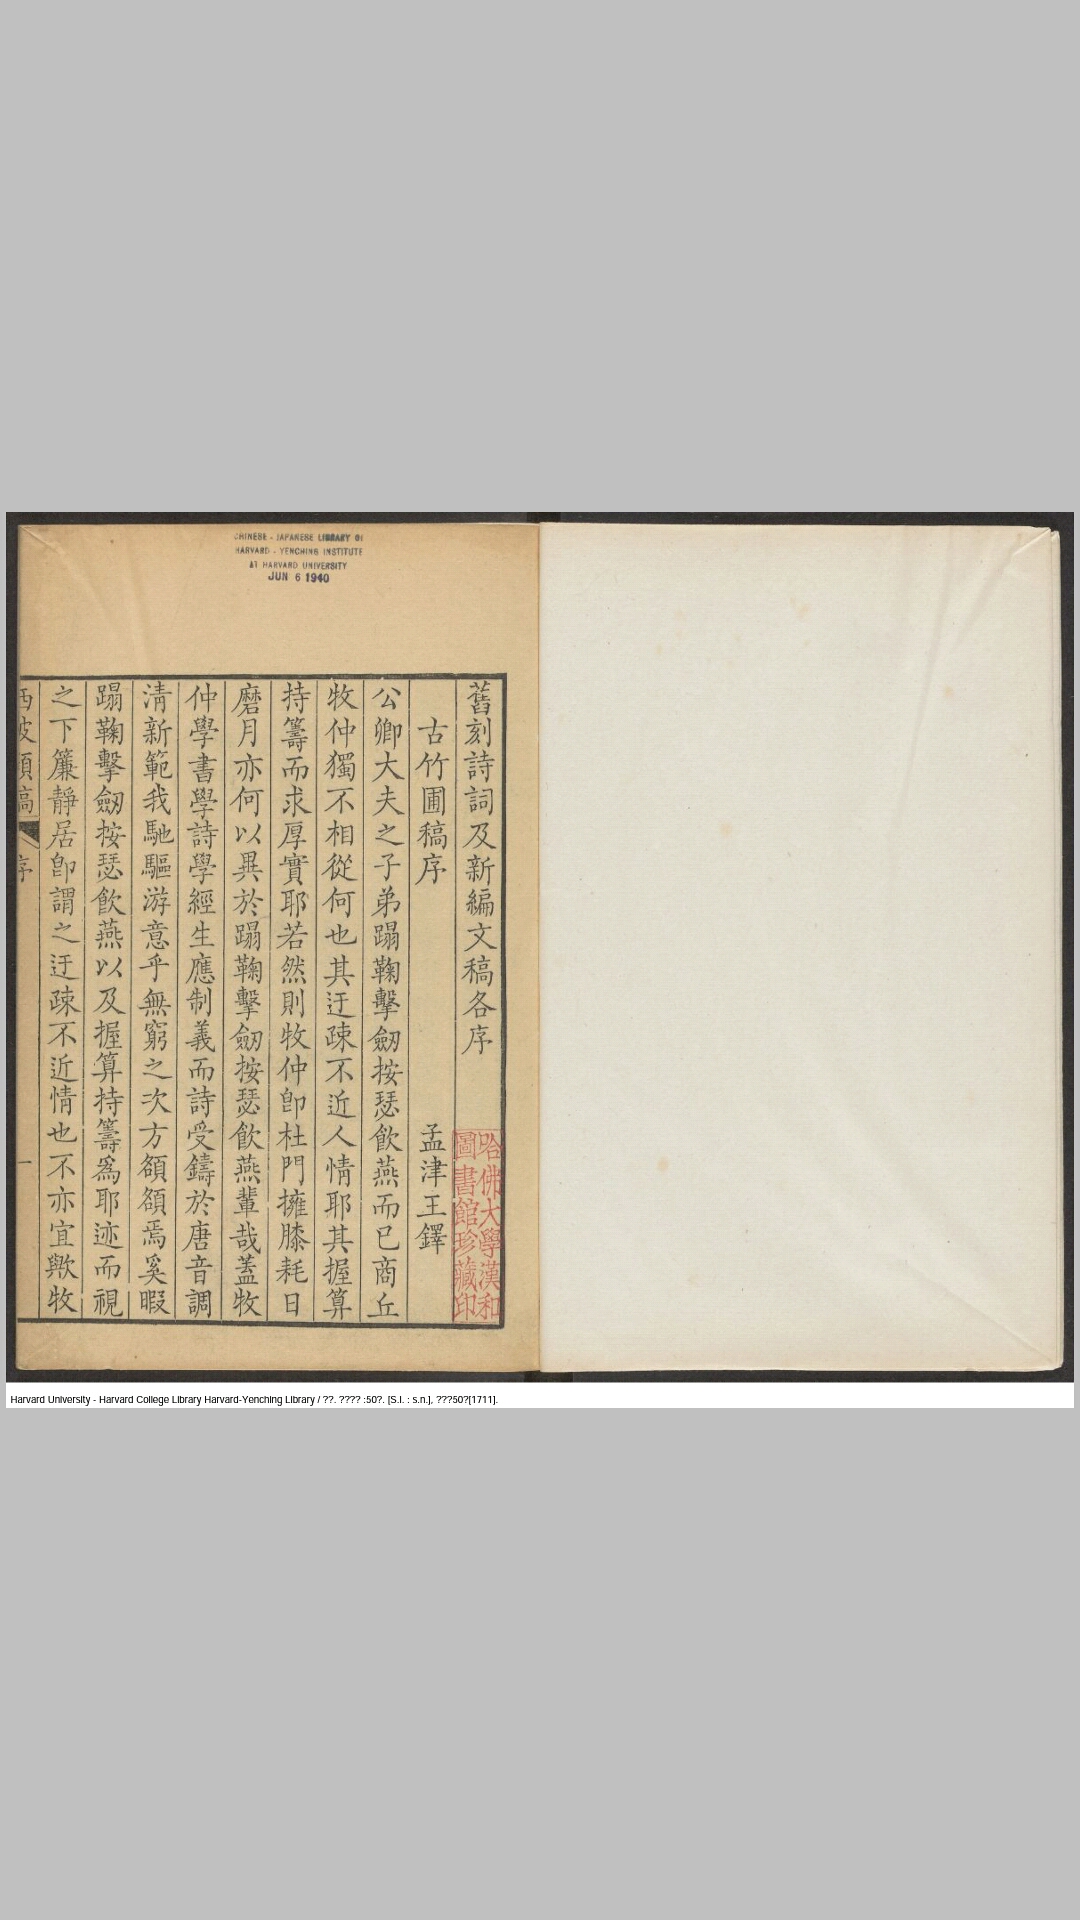 CHINESE - JAPANESE LIBRARY OF
HARVARD - YENCHING INSTITUTE
AT HARVARD UNIVERSITY
JUN 6 1940
舊刻詩詞及新編文稿各序
古竹圃稿序 孟津王鐸
公卿大夫之子弟蹋鞠擊劒按瑟飲燕而已商丘
牧仲獨不相從何也其迂疎不近人情耶其握算
持籌而求厚實耶若然則牧仲卽杜門擁膝耗日
磨月亦何以異於蹋鞠擊劒按瑟飲燕輩哉蓋牧
仲學書學詩學經生應制義而詩受鑄於唐音調
清新範我馳驅游意乎無窮之次方頟頟焉奚暇
蹋鞠擊劒按瑟飲燕以及握算持籌爲耶迹而視
之下簾靜居卽謂之迂疎不近情也不亦宜歟牧
西陂類稿 序 一
哈佛大學漢和
圖書館珍藏印
Harvard University - Harvard College Library Harvard-Yenching Library / ??. ???? :50?. [S.l. : s.n.], ???50?[1711].